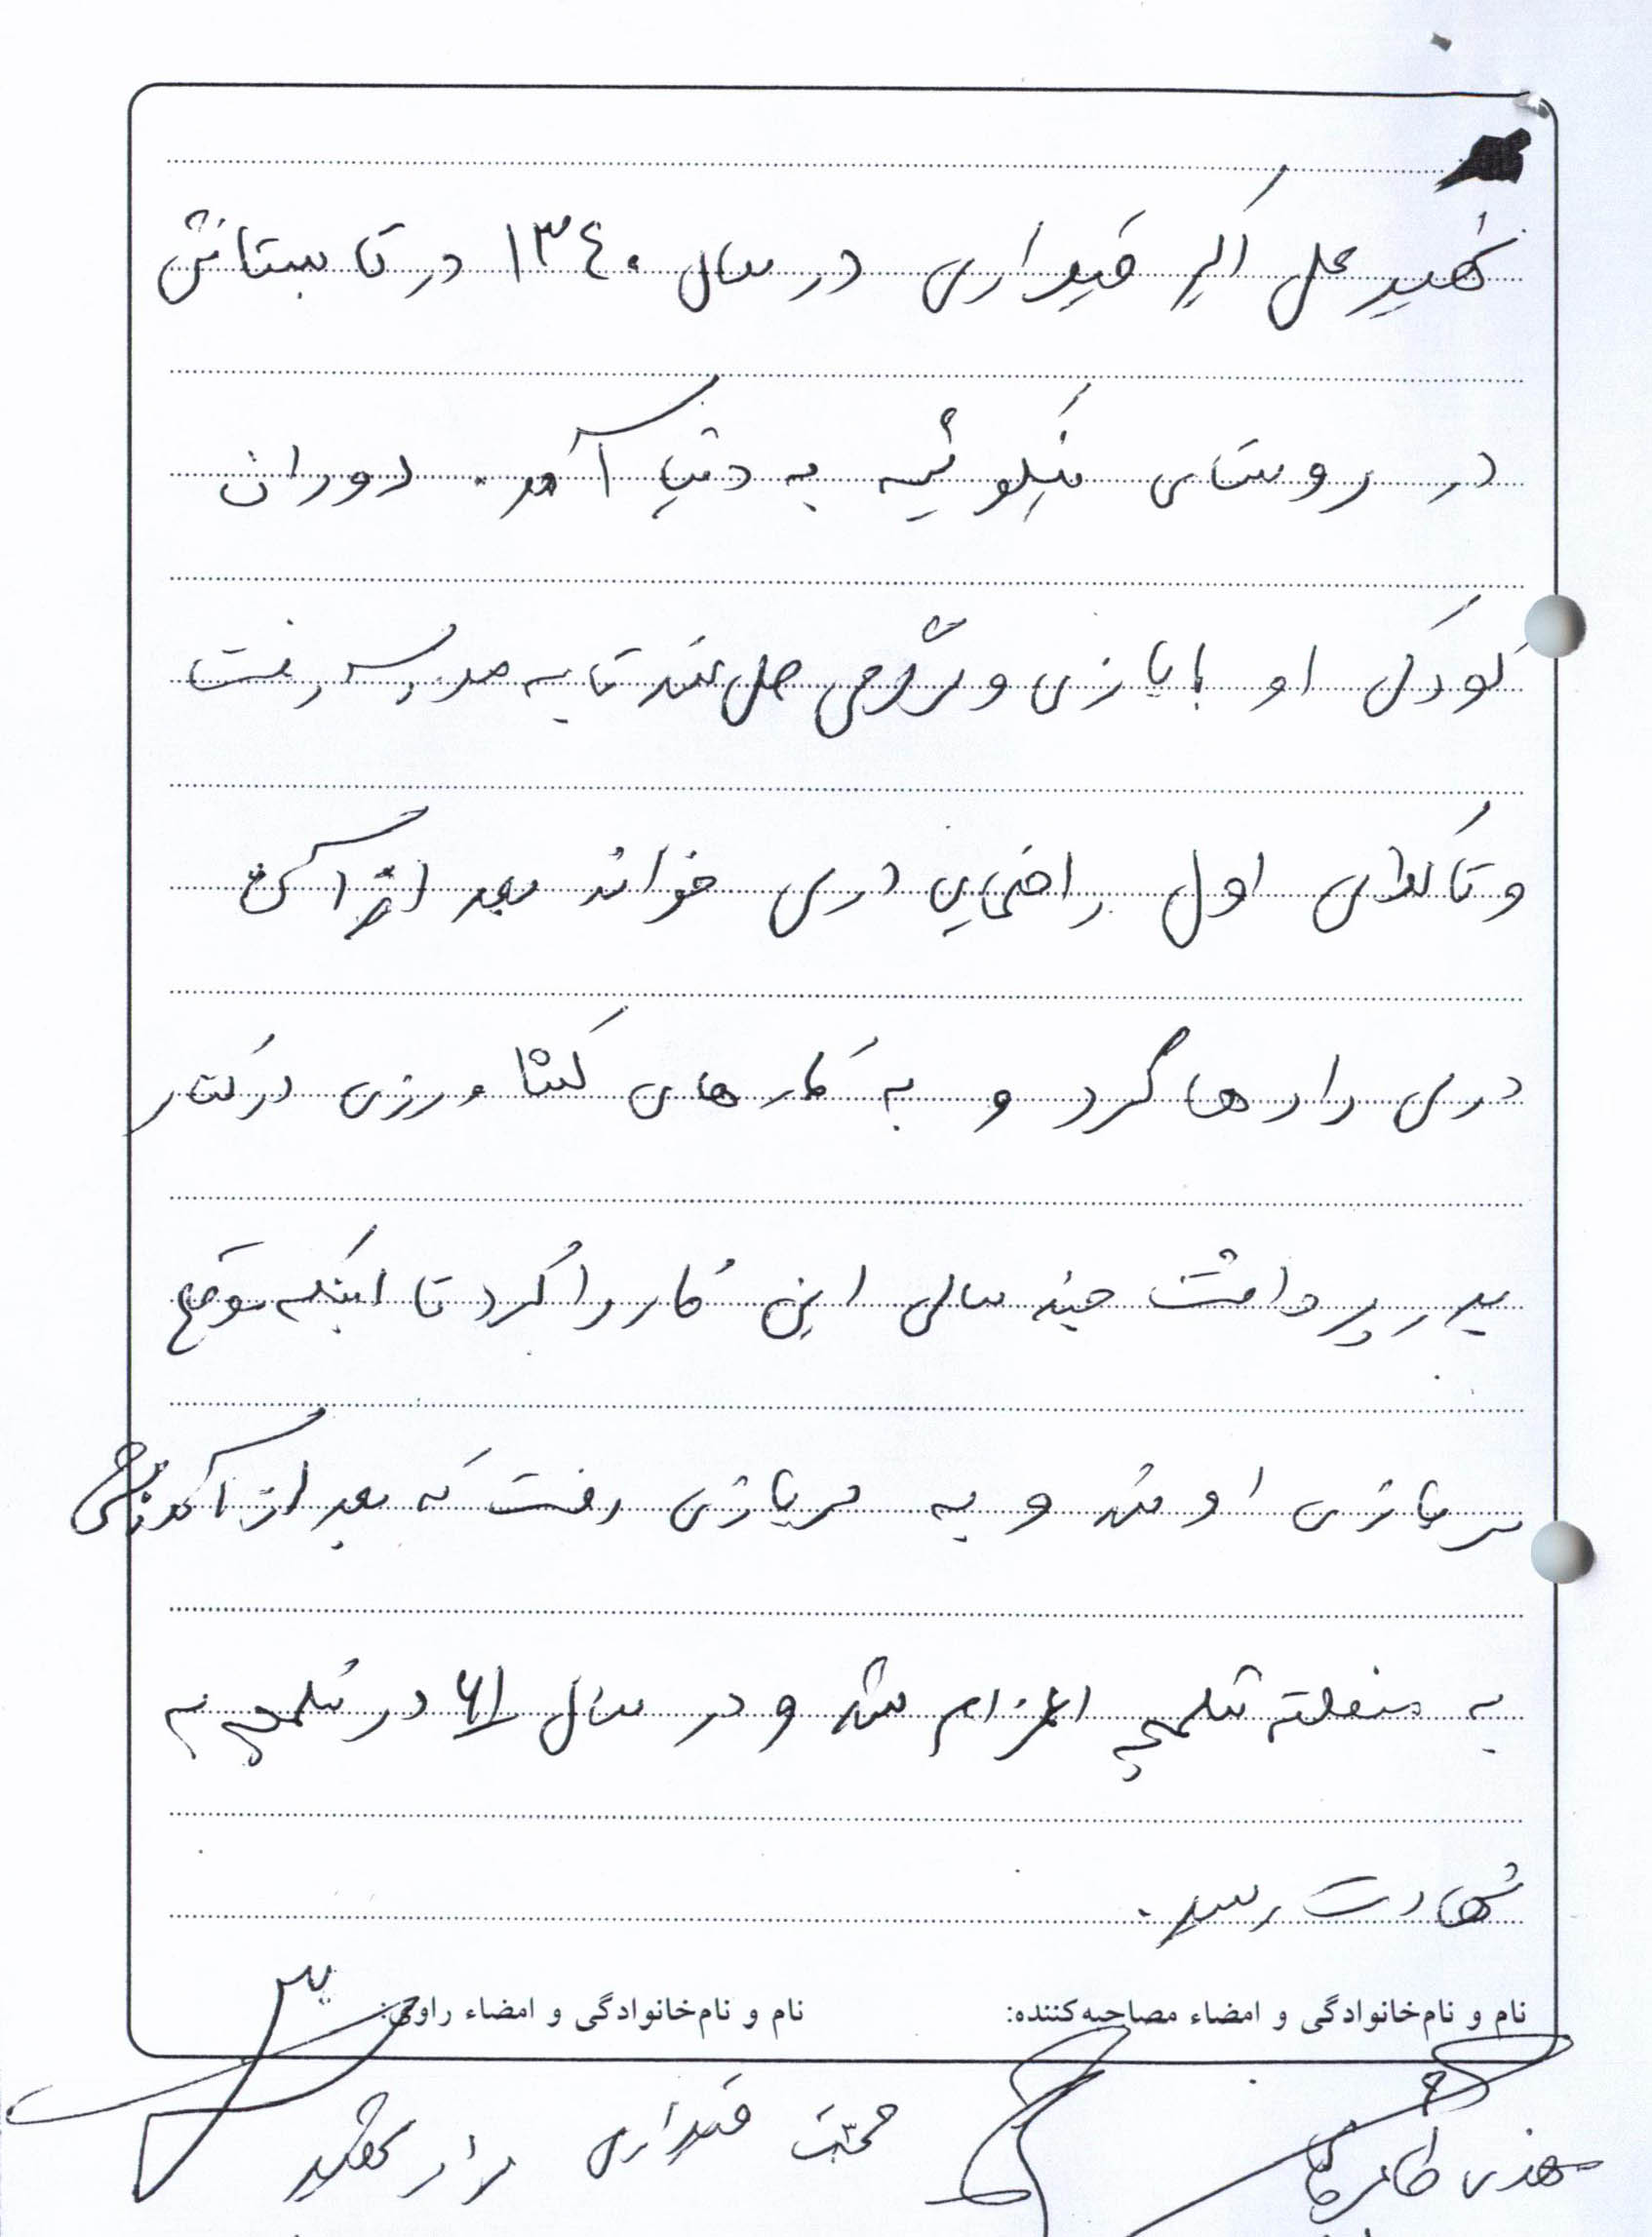 شهید علی اکبر قیداری در سال ۱۳٤۰ در تابستانش
در روستای نیکوئیه به دنیا آمد. دوران
کودکی او با بازی و سرگرمی طی شد تا به مدرسه رفت
و تا کلاس اول راهنمایی درس خواند بعد از آن
درس را رها کرد و به کارهای کشاورزی در کنار
پدر پرداخت چند سالی این کار را کرد تا اینکه موقع
سربازی او شد و به سربازی رفت که بعد از آموزشی
به منطقه شلمچه اعزام شد و در سال ۶۱ در شلمچه به
شهادت رسید.
نام و نام‌خانوادگی و امضاء مصاحبه‌کننده: نام و نام‌خانوادگی و امضاء راوی:
قیداری برادر شهید